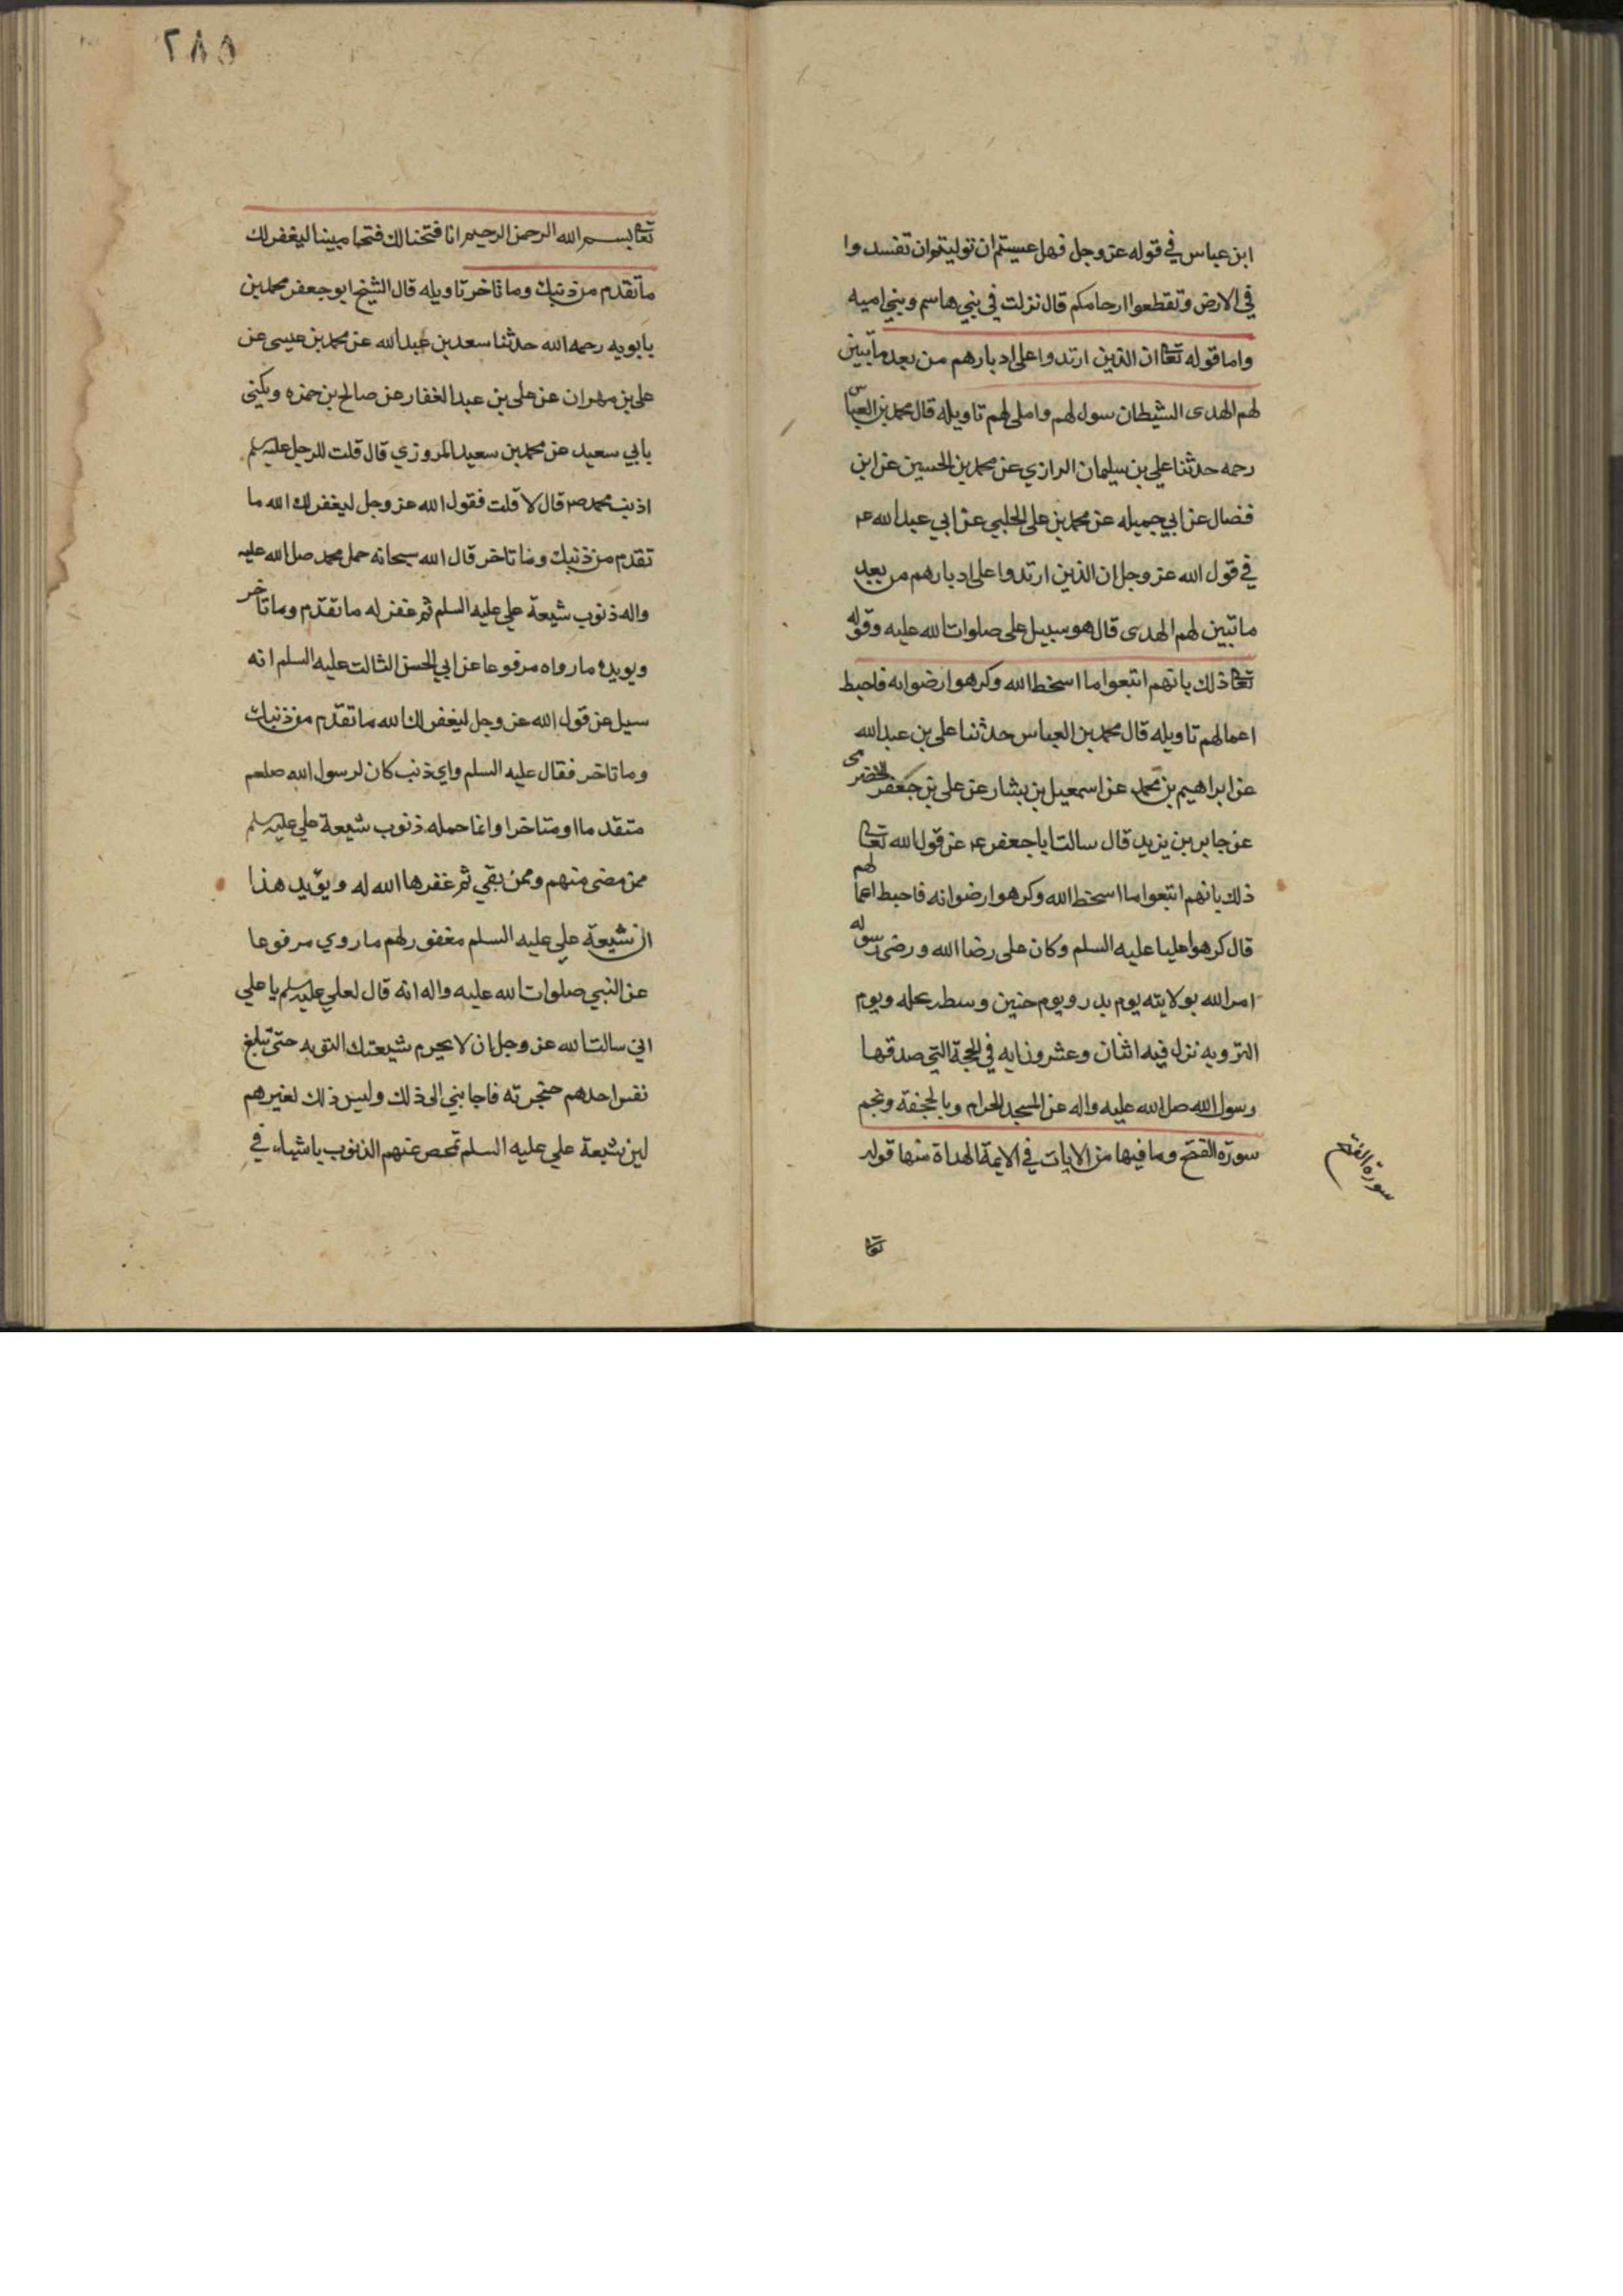 ابن عباس في قوله عز وجل فهل عسيتم ان توليتم ان تفسدوا
في الارض وتقطعوا ارحامكم قال نزلت في بني هاسم وبني اميه
واما قوله تعا ان الذين ارتدوا على ادبارهم من بعد ما تبين
لهم الهدى الشيطان سول لهم واملى لهم تاويله قال محمد بن العباس
رحمه حدثنا علي بن سليمان الرازي عن محمد بن الحسين عن ابن
فضال عن ابي جميله عن محمد بن على الحلبي عن ابي عبد الله ع
في قول الله عز وجل ان الذين ارتدوا على ادبارهم من بعد
ما تبين لهم الهدى قال هو سبيل على صلوات الله عليه وقوله
تعا ذلك بانهم اتبعوا ما اسخط الله وكرهوا رضوانه فاحبط
اعمالهم تاويله قال محمد بن العباس حدثنا على بن عبد الله
عن ابراهيم بن محمد عن اسمعيل بن بشار عن على بن جعفر الحضرمى
عن جابر بن يزيد قال سالت ابا جعفر ع عن قول الله تعا
ذلك بانهم اتبعوا ما اسخط الله وكرهوا رضوانه فاحبط اعمالهم
قال كرهوا عليا عليه السلم وكان على رضا الله ورضى رسوله
امر الله بولايته يوم بدر ويوم حنين وسطر نحله ويوم
الترويه نزل فيه اثنان وعشرون ايه في الحجة التي صدفها
رسول الله صل الله عليه واله عن المسجد الحرام وبالجحفة وبخم
سورة الفتح وما فيها من الايات في الايمة الهداة منها قوله
سورة الفتح
تعا
٢٨٥
تعا بسم الله الرحمن الرحيم انا فتحنا لك فتحا مبينا ليغفر لك
ما تقدم من ذنبك وما تاخر تاويله قال الشيخ ابو جعفر محمد بن
بابويه رحمه الله حدثنا سعد بن عبد الله عن محمد بن عيسى عن
على بن مهران عن على بن عبد الغفار عن صالح بن حمزه ويكنى
بابي سعيد عن محمد بن سعيد المروزي قال قلت للرجل عليه سلم
اذنب محمد ص قال لا قلت فقول الله عز وجل ليغفر لك الله ما
تقدم من ذنبك وما تاخر قال الله سبحانه حمل محمد صل الله عليه
واله ذنوب شيعة علي عليه السلم ثم غفر له ما تقدم وما تاخر
ويويده ما رواه مرفوعا عن ابي الحسن الثالث عليه السلم انه
سيل عن قول الله عز وجل ليغفر لك الله ما تقدم من ذنبك
وما تاخر فقال عليه السلم واي ذنب كان لرسول الله صلعم
متقدما او متاخرا وانما حمله ذنوب شيعة علي عليه سلم
ممن مضى منهم وممن بقي ثم غفرها الله له ويؤيد هذا
ان شيعة علي عليه السلم مغفور لهم ما روي مرفوعا
عن النبي صلوات الله عليه واله انه قال لعلي عليه سلم يا علي
اني سالت الله عز وجل ان لا يحرم شيعتك التوبه حتى تبلغ
نفس احدهم حنجرته فاجابني الى ذلك وليس ذلك لغيرهم
لين شيعة علي عليه السلم تمحص عنهم الذنوب باشياء في